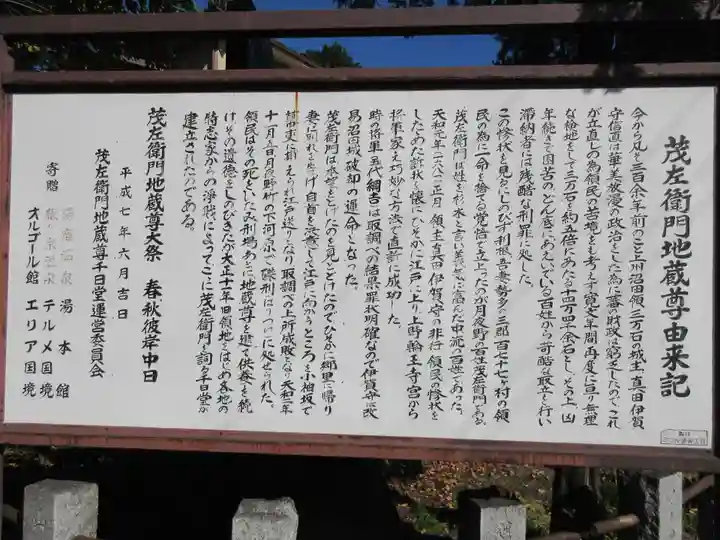 茂左衛門地蔵尊由来記
今から凡そ三百余年前のこと上州沼田領三万石の城主真田伊賀
守信直は華美放漫の政治をした為に藩の財政は窮乏したのでこれ
が立直しの為領民の苦境をも考えず寛文年間再度に亘り無理
な検地をして三万石を約五倍にあたる十四万四千余石とし、その上、凶
年続きで困苦のどん底にあえいでいる百姓から苛酷な取立を行い
滞納者には残酷な刑罪に処した。
この惨状を見るにしのびず利根吾妻勢多の三郡百七十七ヶ村の領
民の為に一命を捨てる覚悟で立上ったのが月夜野の百姓茂左衛門である
茂左衛門は姓を杉木と言い義気に富んだ中流の百姓であった。
天和元年(一六八一)正月領主真田伊賀守の非行領民の惨状を
したためた訴状を懐にひそかに江戸に上り上野輪王寺宮から
将軍家え巧妙な方法で直訴に成功した。
時の将軍五代綱吉は取調べの結果罪状明確なので伊賀守は改
易沼田城破却の運命となった。
茂左衛門は本望をとげたのを見とどけたのでひそかに郷里に帰り
妻に別れを告げ自首を決意して江戸に向かうところを小袖坂で
捕吏に捕えられ江戸送りとなり取調べの上所成敗となり天和二年
十一月五日月夜野竹の下河原で磔刑はりつけに処せられた。
領民はその死をいたみ刑場あとに地蔵尊を建て供養を続
けその遺徳をしのびきたが大正十一年旧領地をはじめ各地の
特志家からの浄財によってここに茂左衛門を祠る千日堂が
建立されたのである。
茂左衛門地蔵尊大祭 春秋彼岸中日
平成七年六月吉日
茂左衛門地蔵尊千日堂運営委員会
寄贈
湯本館
テルメ国境
オルゴール館 エリア国境